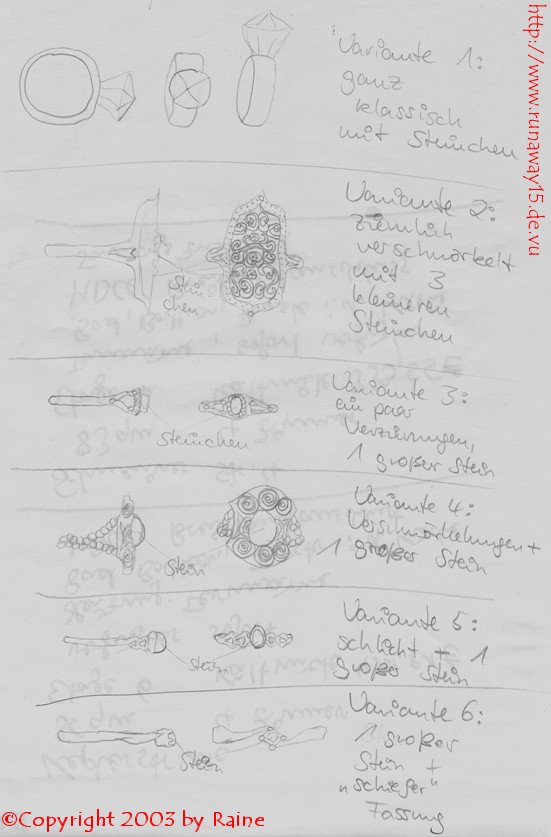 http://www.runaway15.de.vu
Variante 1:
ganz
klassisch
mit Steinchen
Variante 2:
ziemlich
verschnörkelt
mit 3
kleineren
Steinchen
Stein
chen
Variante 3:
ein paar
Verzierungen,
1 großer Stein
Steinchen
Variante 4:
+
1 großer Stein
Stein
Variante 5:
schlicht + 1
großer Stein
Stein
Variante 6:
1 großer
Stein +
„schiefer"
Fassung
Stein
©Copyright 2003 by Raine